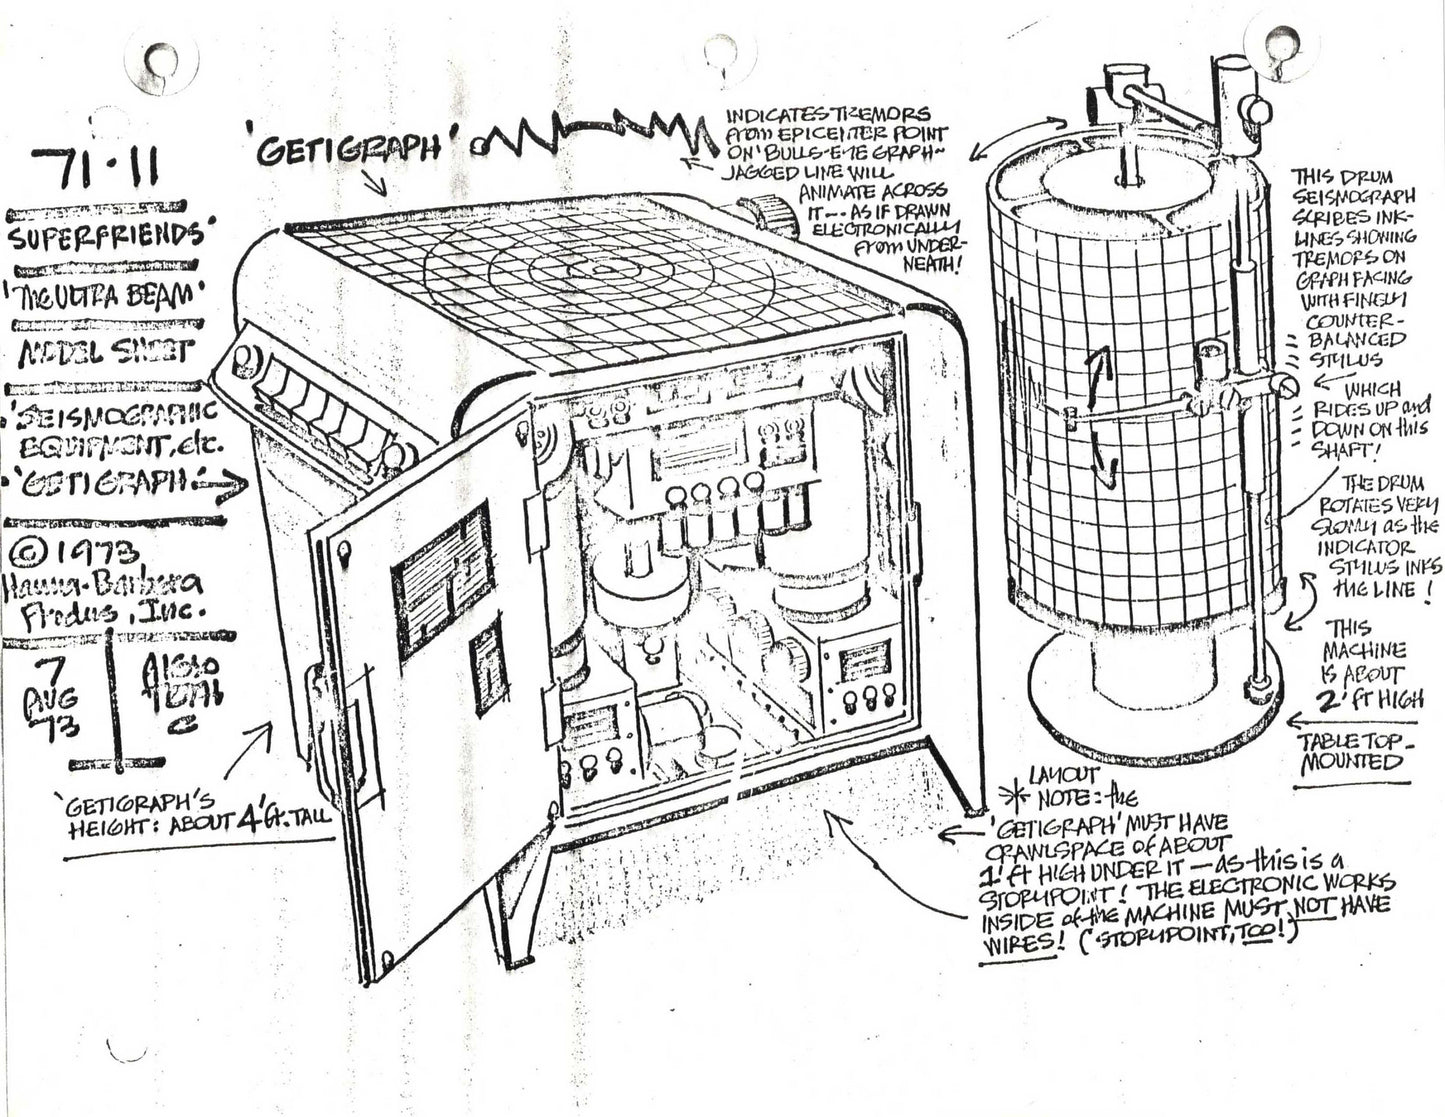 71·11
SUPERFRIENDS'
'THE ULTRA BEAM'
MODEL SHEET
'SEISMOGRAPHIC
EQUIPMENT, etc.
'GETIGRAPH'
© 1973
Hanna-Barbera
Prodns, Inc.
7
AUG
73
ALSO
C
'GETIGRAPH'S
HEIGHT: ABOUT 4' ft. TALL
'GETIGRAPH'
INDICATES TREMORS
from EPICENTER POINT
ON 'BULLS-EYE GRAPH~
JAGGED LINE WILL
ANIMATE ACROSS
IT -- AS IF DRAWN
ELECTRONICALLY
from UNDER-
NEATH!
THIS DRUM
SEISMOGRAPH
SCRIBES INK-
LINES SHOWING
TREMORS ON
GRAPH FACING
WITH FINELY
COUNTER-
BALANCED
STYLUS
WHICH
RIDES UP and
DOWN ON this
SHAFT!
THE DRUM
ROTATES VERY
SLOWLY as the
INDICATOR
STYLUS INKS
the LINE!
THIS
MACHINE
IS ABOUT
2' ft HIGH
TABLE TOP-
MOUNTED
* LAYOUT
NOTE: the
'GETIGRAPH' MUST HAVE
CRAWLSPACE of ABOUT
1' ft HIGH UNDER IT — AS this is a
STORYPOINT! THE ELECTRONIC WORKS
INSIDE of the MACHINE MUST NOT HAVE
WIRES! ('STORYPOINT, TOO!)